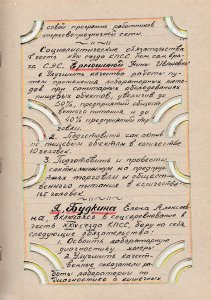 совой программ работников
торгово-бытовой сети.
Социалистические обязательства
в честь XXV съезда КПСС пом. сан. врача
С.Э.С. Ермошиной Анны Ивановны
1. Улучшить качество работы пу-
тём применения лабораторных мето-
дов при санитарных обследованиях
пищевых объектов, увеличив до
50% предприятий общест-
венного питания, и
40% предприятий тор-
говли.
2. Подготовить сан. актив
по пищевым объектам в количестве
10 человек.
3. Подготовить и провести
санминимум на предприя-
тиях торговли и обществен-
ного питания в количестве
145 человек.
Я, Будкина Елена Алексеев-
на, включаясь в соцсоревнование в
честь XXV съезда КПСС, беру на себя
следующие обязательства:
1. Освоить лабораторную
диагностику холеры
2. Улучшить качест-
венные показатели ра-
боты лаборатории по
диагностике в кишечных